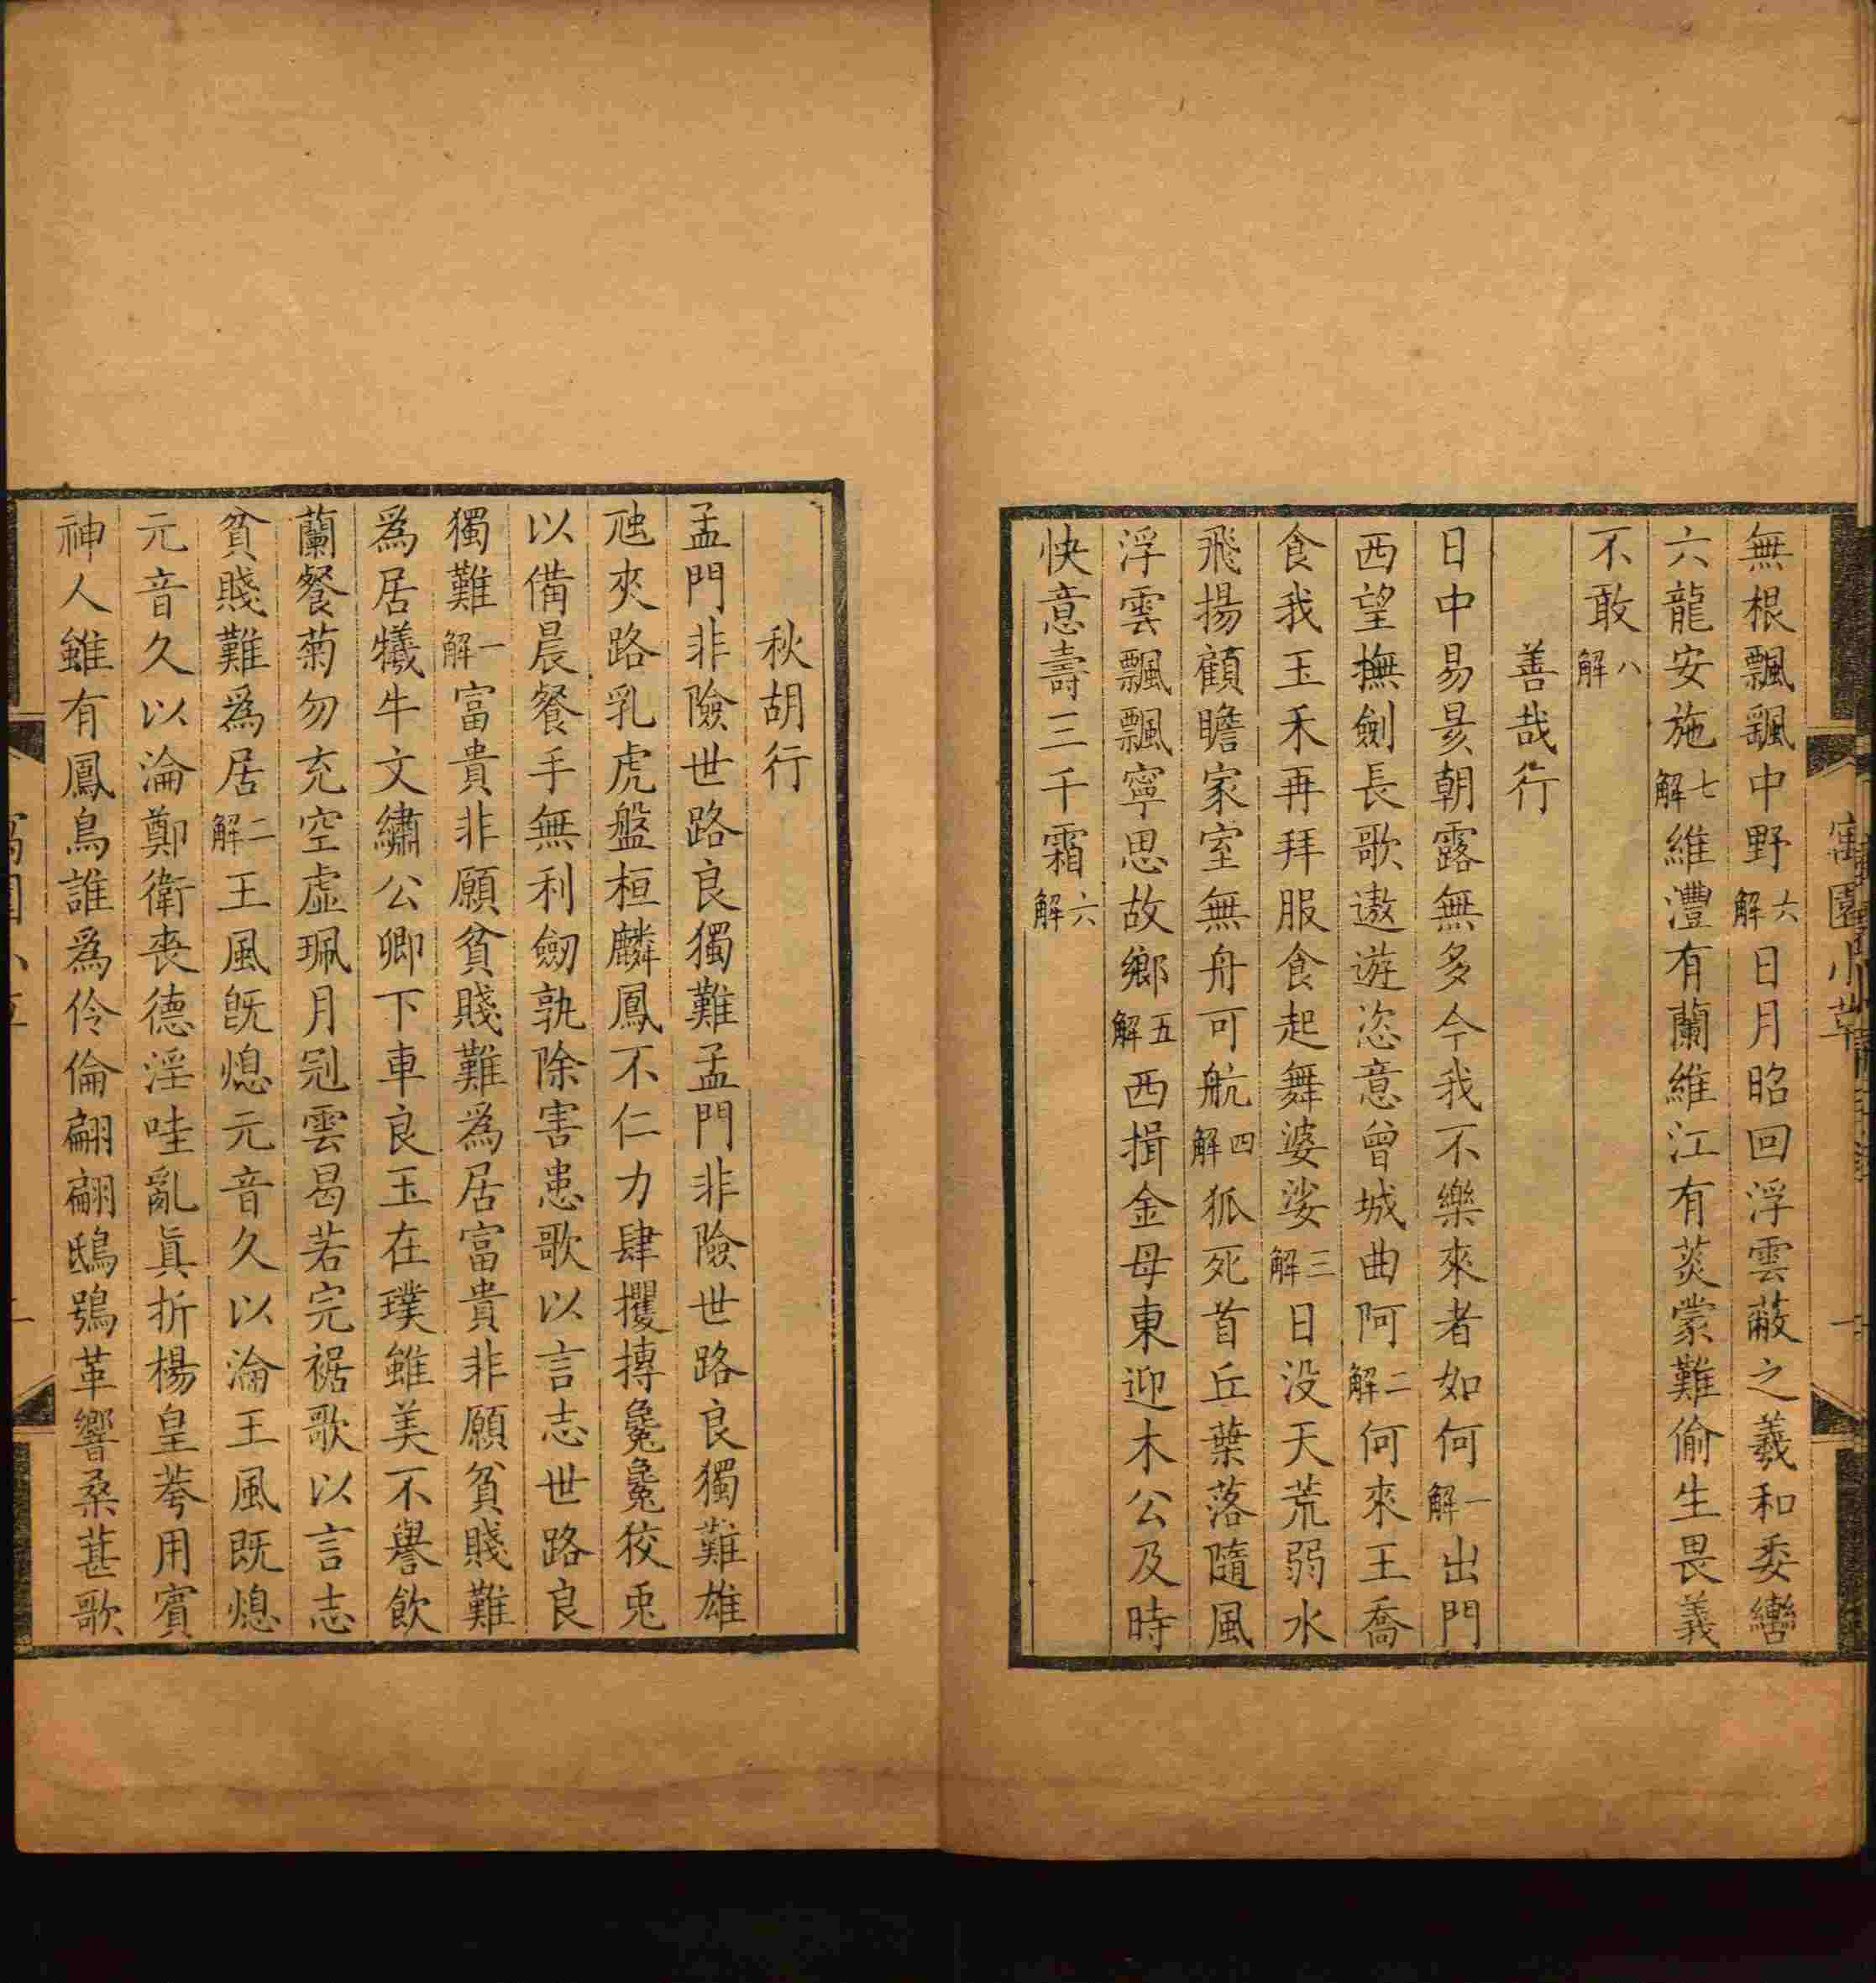 無根飄颻中野六解日月昭回浮雲蔽之羲和委轡
六龍安施七解維灃有蘭維江有菼蒙難偷生畏義
不敢八解
善哉行
日中易昃朝露無多今我不樂來者如何一解出門
西望撫劍長歌遨遊恣意曾城曲阿二解何來王喬
食我玉禾再拜服食起舞婆娑三解日没天荒弱水
飛揚顧瞻家室無舟可航四解狐死首丘葉落隨風
浮雲飄飄寧思故鄉五解西揖金母東迎木公及時
快意壽三千霜六解
秋胡行
孟門非險世路良獨難孟門非險世路良獨難雄
虺夾路乳虎盤桓麟鳳不仁力肆攫摶毚毚狡兎
以備晨餐手無利劒孰除害患歌以言志世路良
獨難一解富貴非願貧賤難爲居富貴非願貧賤難
爲居犧牛文繡公卿下車良玉在璞雖美不譽飲
蘭餐菊勿充空虛珮月冠雲曷若完裾歌以言志
貧賤難爲居二解王風旣熄元音久以淪王風既熄
元音久以淪鄭衛喪德淫哇亂眞折楊皇荂用賓
神人雖有鳳鳥誰爲伶倫翩翩鴟鴞革響桑葚歌